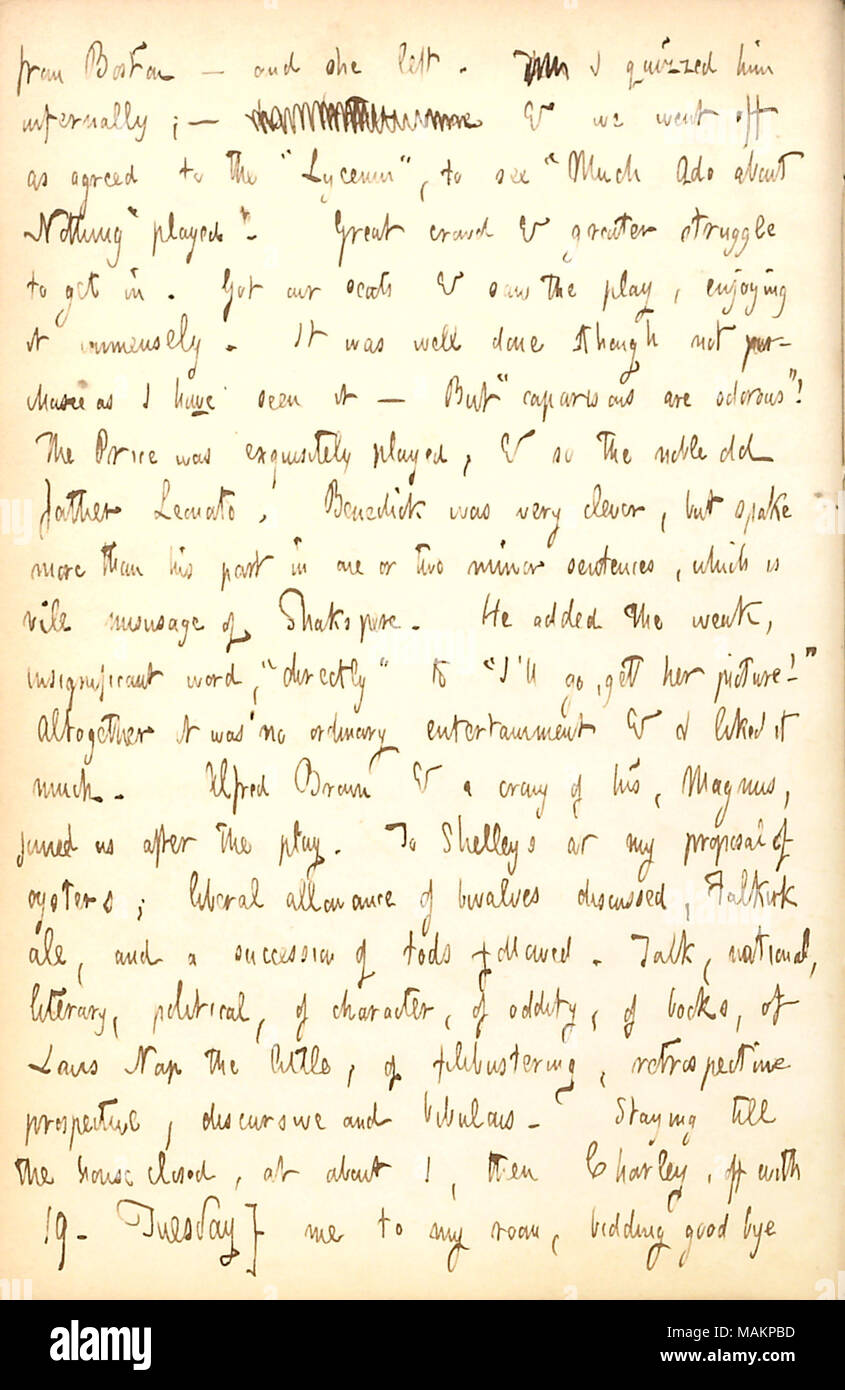 from Boston — and she left. I quizzed him
infernally; — & we went off
as agreed to the "Lyceum", to see "Much Ado about
Nothing" played". Great crowd & greater struggle
to get in. Got our seats & saw the play, enjoying
it immensely. It was well done though not per-
as I have seen it — But "caparisons are odorous"!
The Price was exquisitely played, & so the noble old
father Leonato. Benedick was very clever, but spake
more than his part in one or two minor sentences, which is
vile misusage of Shakspere. He added the weak,
insignificant word, "directly" to "I'll go, get her picture!"
Altogether it was no ordinary entertainment & I liked it
much. Alfred Brown & a crony of his, Magnus,
joined us after the play. To Shelleys at my proposal of
oysters; liberal allowance of bivalves discussed, Falkirk
ale, and a succession of tods followed. Talk, national,
literary, political, of character, of oddity, of books, of
Louis Nap the little, of filibustering, retrospective
prospective, discursive and bibulous. Staying till
the house closed, at about 1, then Charley, off with
19. Tuesday} me to my room, bidding good bye
alamy
Image ID: MAKPBD
www.alamy.com